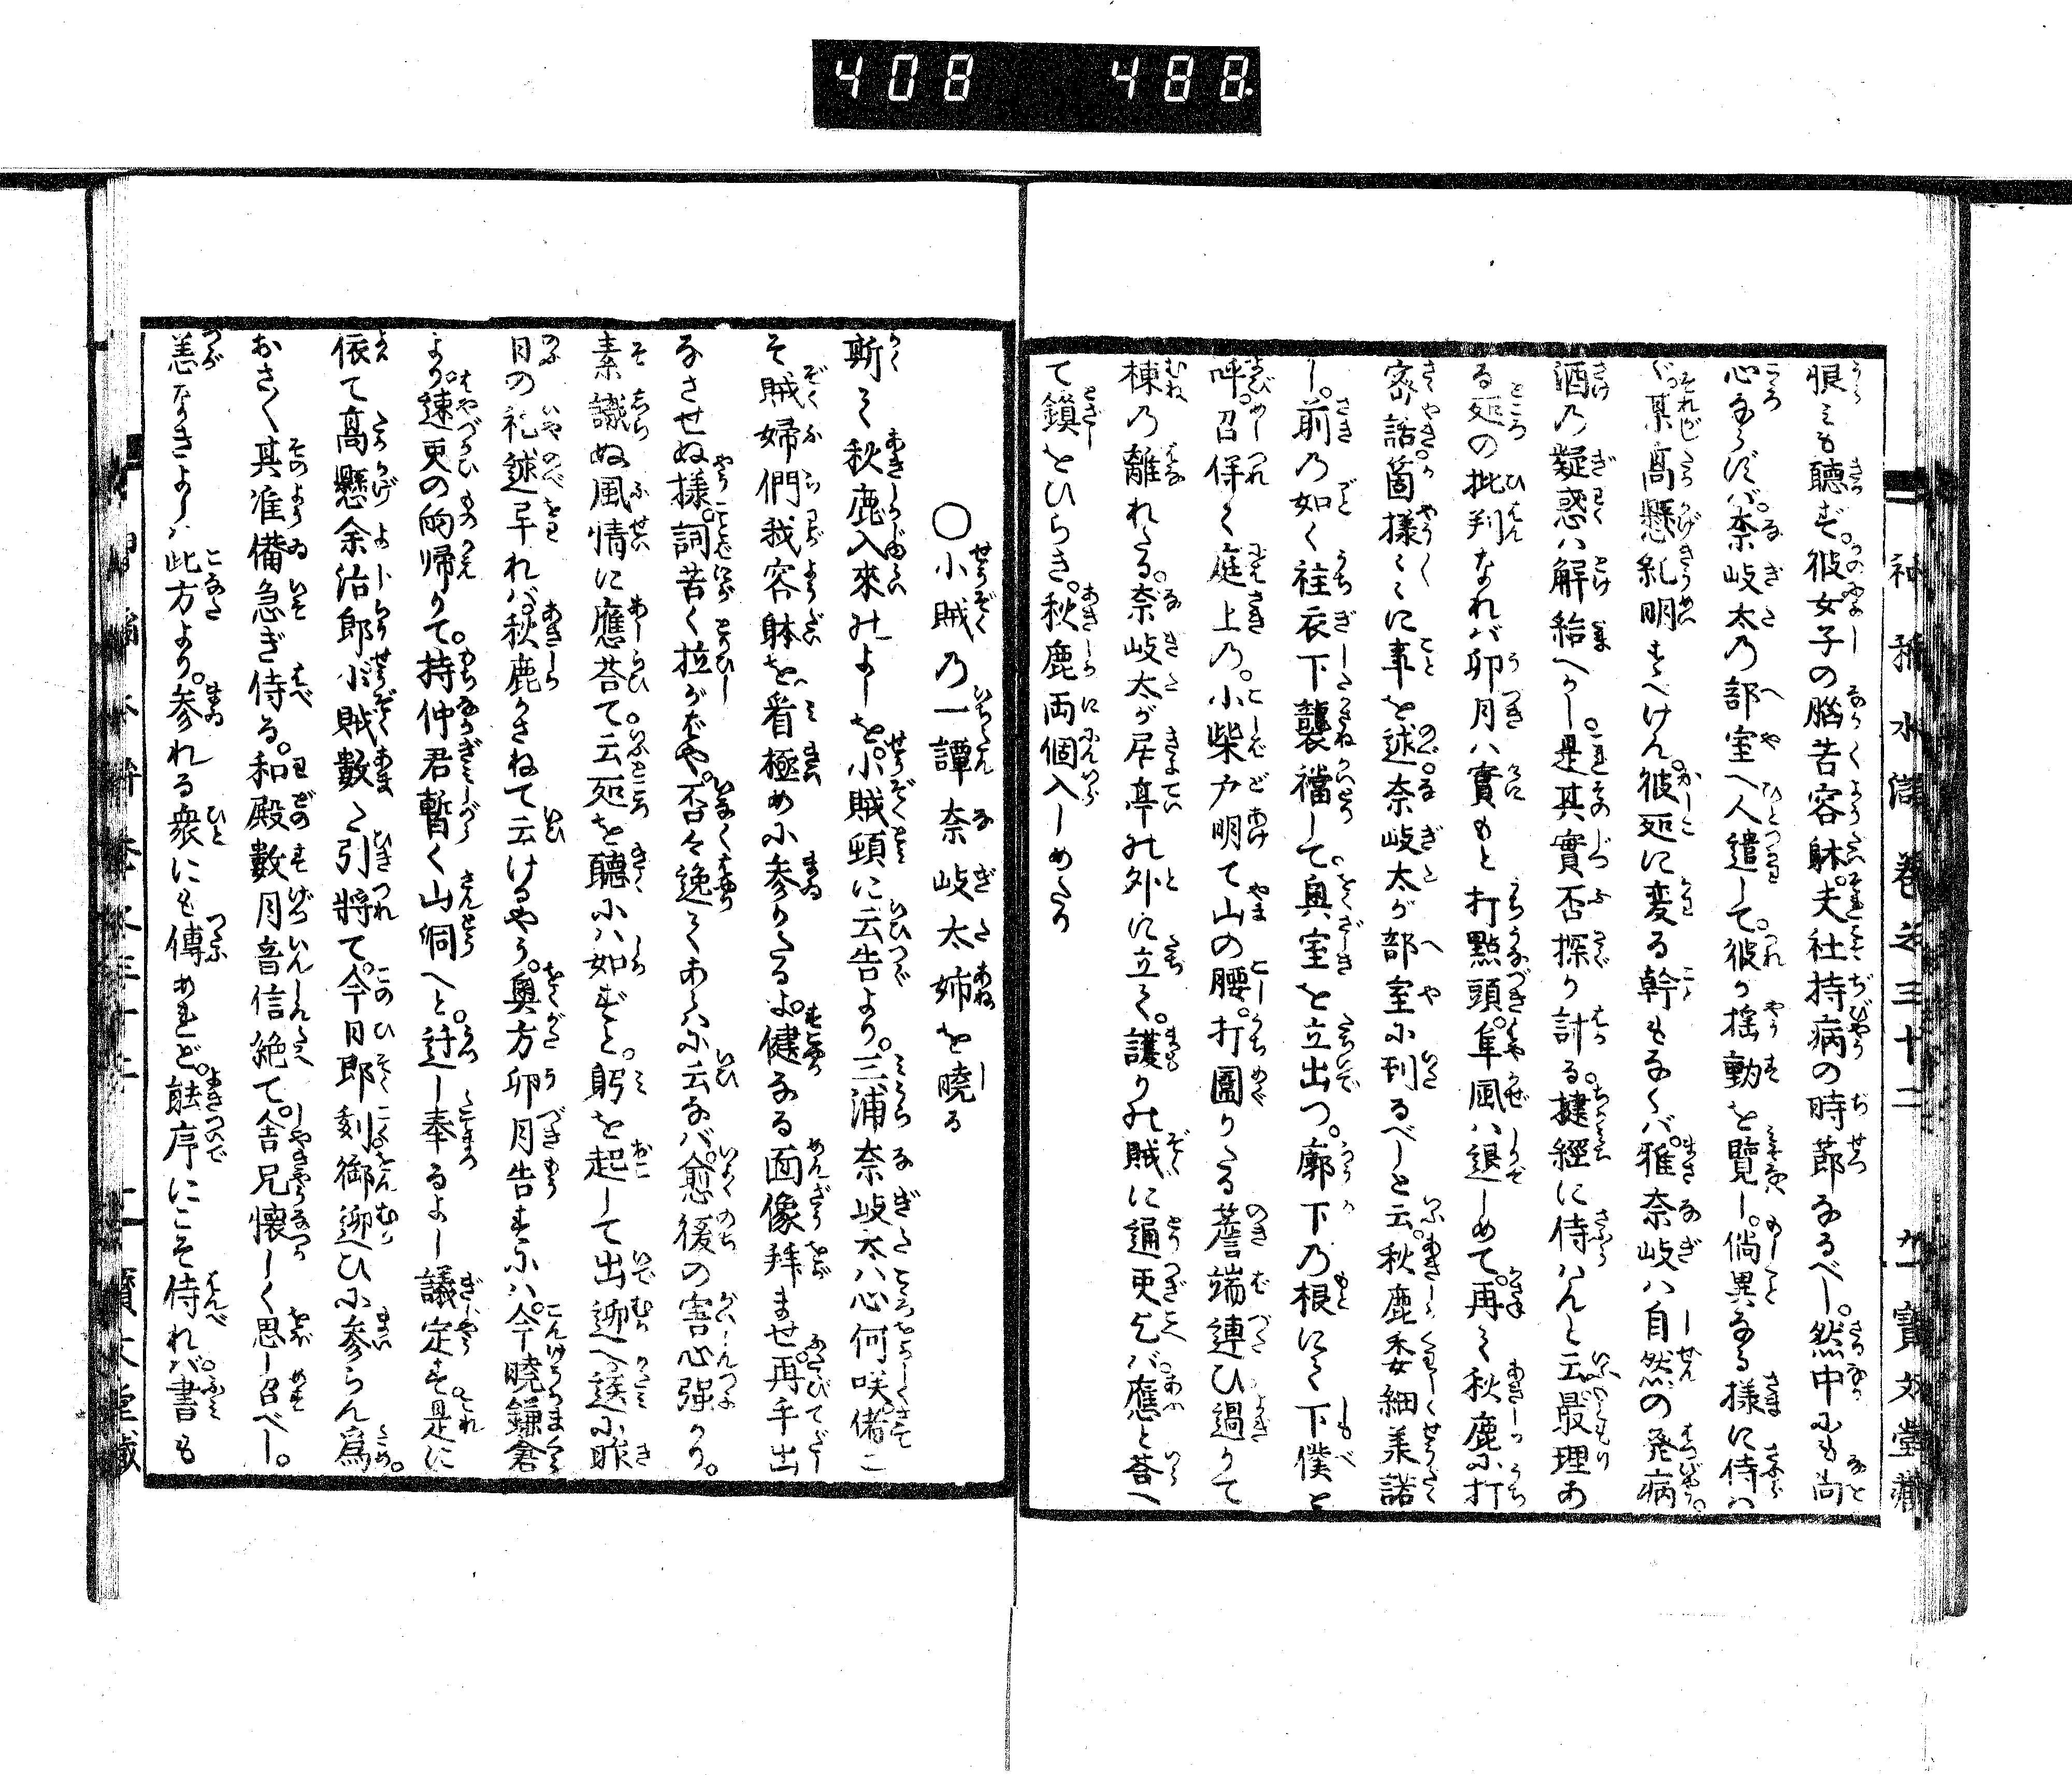 408 488
恨みも聴ず。彼女子の脳苦容躰。夫社持病の時節なるべし。然中にも尚
心ならずバ。奈岐太の部室へ人遣して。彼が揺動を覧し。倘異なる様に侍ハ
ゞ某高懸糺明すべけん。彼処に変る幹もなくバ。雅奈岐ハ自然の発病。
酒の疑惑ハ解給へかし。是其實否探り計る捷經に侍ハんと云。最理あ
る処の批判なれバ卯月ハ實もと打點頭。隼風ハ退しめて。再び秋鹿に打
密話。箇様々々に事を述。奈岐太が部室に到るべしと云。秋鹿委細美諾
し。前の如く袿衣下襲襠して。奥室を立出つ。廓下の根にて下僕を
呼。召倶て庭上の。小柴戸明て山の腰。打圖りたる簷端連ひ過りて
棟の離れたる。奈岐太が居亭の外に立て。護りの賊に通更せバ。應と荅へ
て鎖をひらき。秋鹿両個入しめたり
○小賊の一譚奈岐太姉を曉る
斯て秋鹿入來のよしを。小賊頓に云告より。三浦奈岐太ハ心何咲。偖こ
そ賊婦們我容躰を看極めに参りたるよ。健なる面像拜ませ。再手出
なさせぬ様。詞苦く拉がばや。否々逸てあらハに云なバ。愈後の害心强かり。
素識ぬ風情に應荅て云処を聽にハ如ずと。躬を起して出迎へ送に昨
日の礼述畢れバ。秋鹿かさねて云けるやう。奥方卯月告すにハ。今曉鎌倉
より。速更の的帰りて。持仲君暫く山洞へと。迁し奉るよし議定す是に
依て高懸余治郎小賊數々引將て。今日即刻御迎ひに参らん爲。
おさ〳〵其准備急ぎ侍る。和殿數月音信絶て。舎兄懐しく思し召べし。
恙なきよしハ此方より。参れる衆にも傳めれど。能序にこそ侍れバ。書も